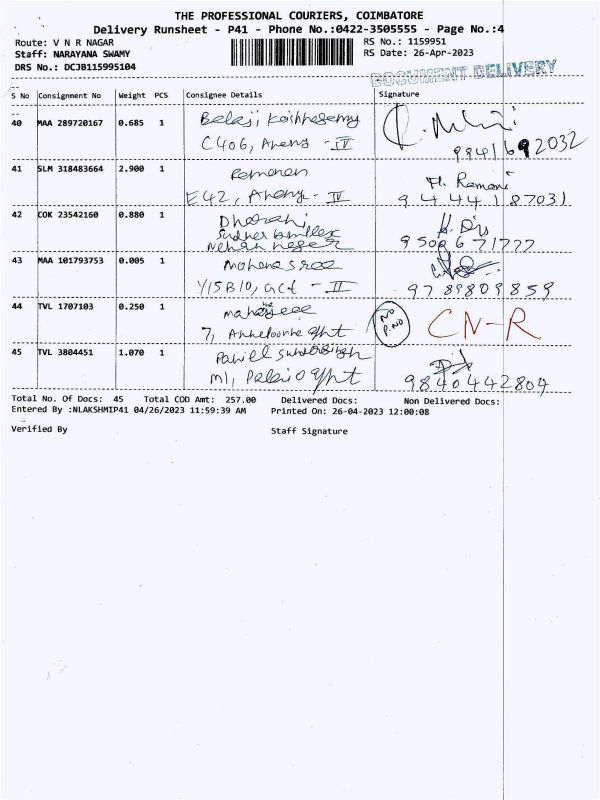 THE PROFESSIONAL COURIERS, COIMBATORE
Delivery Runsheet - P41 - Phone No.:0422-3505555 - Page No.:4
Route: V N R NAGAR RS No.: 1159951
Staff: NARAYANA SWAMY RS Date: 26-Apr-2023
DRS No.: DCJB115995104
DOCUMENT DELIVERY
S No Consignment No Weight PCS Consignee Details Signature
40 MAA 289720167 0.685 1
C406, - IV
99416 92032
41 SLM 318483664 2.900 1
E42, - IV
9444187031
42 COK 23542160 0.880 1 Dharani
9500671777
43 MAA 101793753 0.005 1
Y15B10, - II
9789809859
44 TVL 1707103 0.250 1
NO P.NO CN-R
7,
45 TVL 3804451 1.070 1
M1,
9840442804
Total No. Of Docs: 45 Total COD Amt: 257.00 Delivered Docs: Non Delivered Docs:
Entered By :NLAKSHMIP41 04/26/2023 11:59:39 AM Printed On: 26-04-2023 12:00:08
Verified By Staff Signature